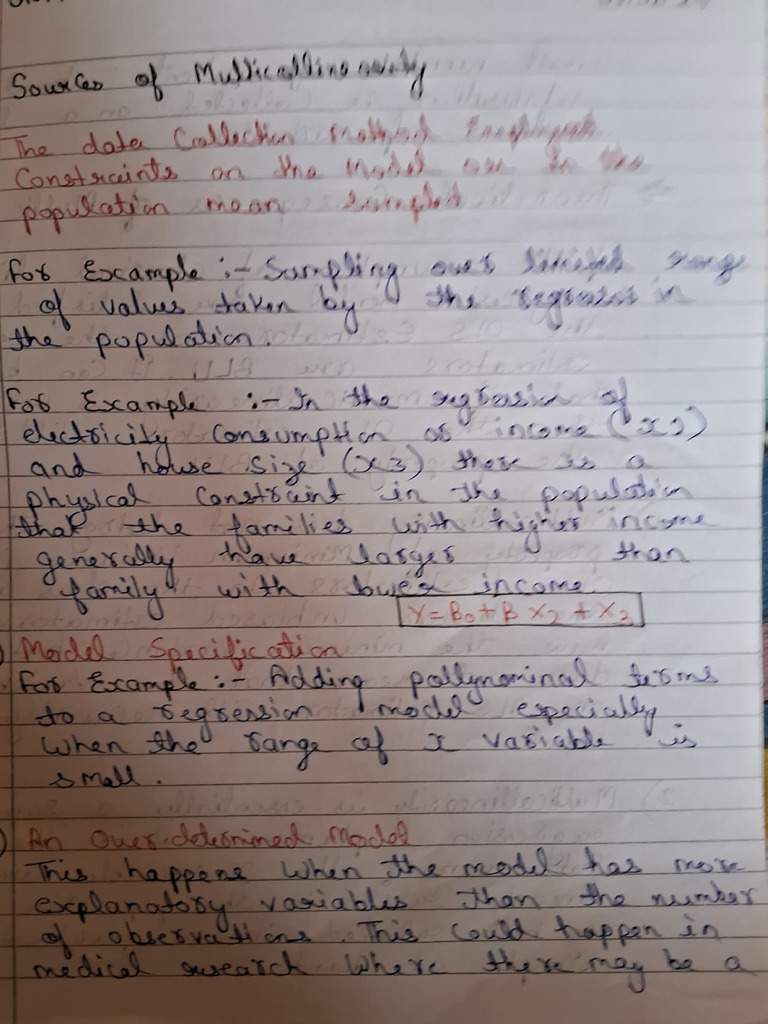 Sources of Multicallinearity
The data Collection Method
Constraints on the Model in the
population mean sampled
For Example :- Sampling over limited range
of values taken by the regressor in
the population.
For Example :- In the regression of
electricity Consumption or income (x2)
and house size (x3) there is a
physical Constraint in the population
that the families with higher income
generally have larger than
family with lower income
Y = B0 + B X2 + X3
Model Specification
For Example :- Adding pollynominal terms
to a regression model especially
when the range of x variable is
small.
An Over determined Model
This happens when the model has more
explanatory variables than the number
of observations. This could happen in
medical research where there may be a